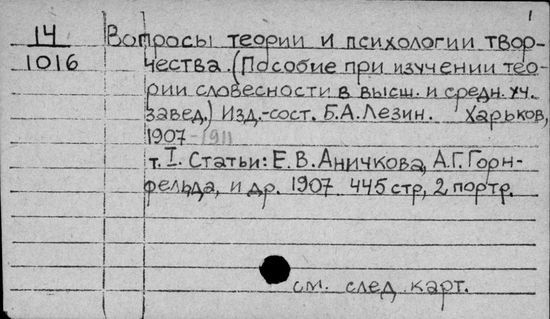 1
14 Вопросы теории и психологии твор-
1016 чества. (Пособие при изучении тео-
рии словесности в высш. и средн. уч.
завед.) Изд.-сост. Б.А.Лезин. Харьков,
1907-1911
т. I. Статьи: Е.В.Аничкова, А.Г.Горн-
фельда, и др. 1907 445 стр, 2 портр.
см. след. карт.